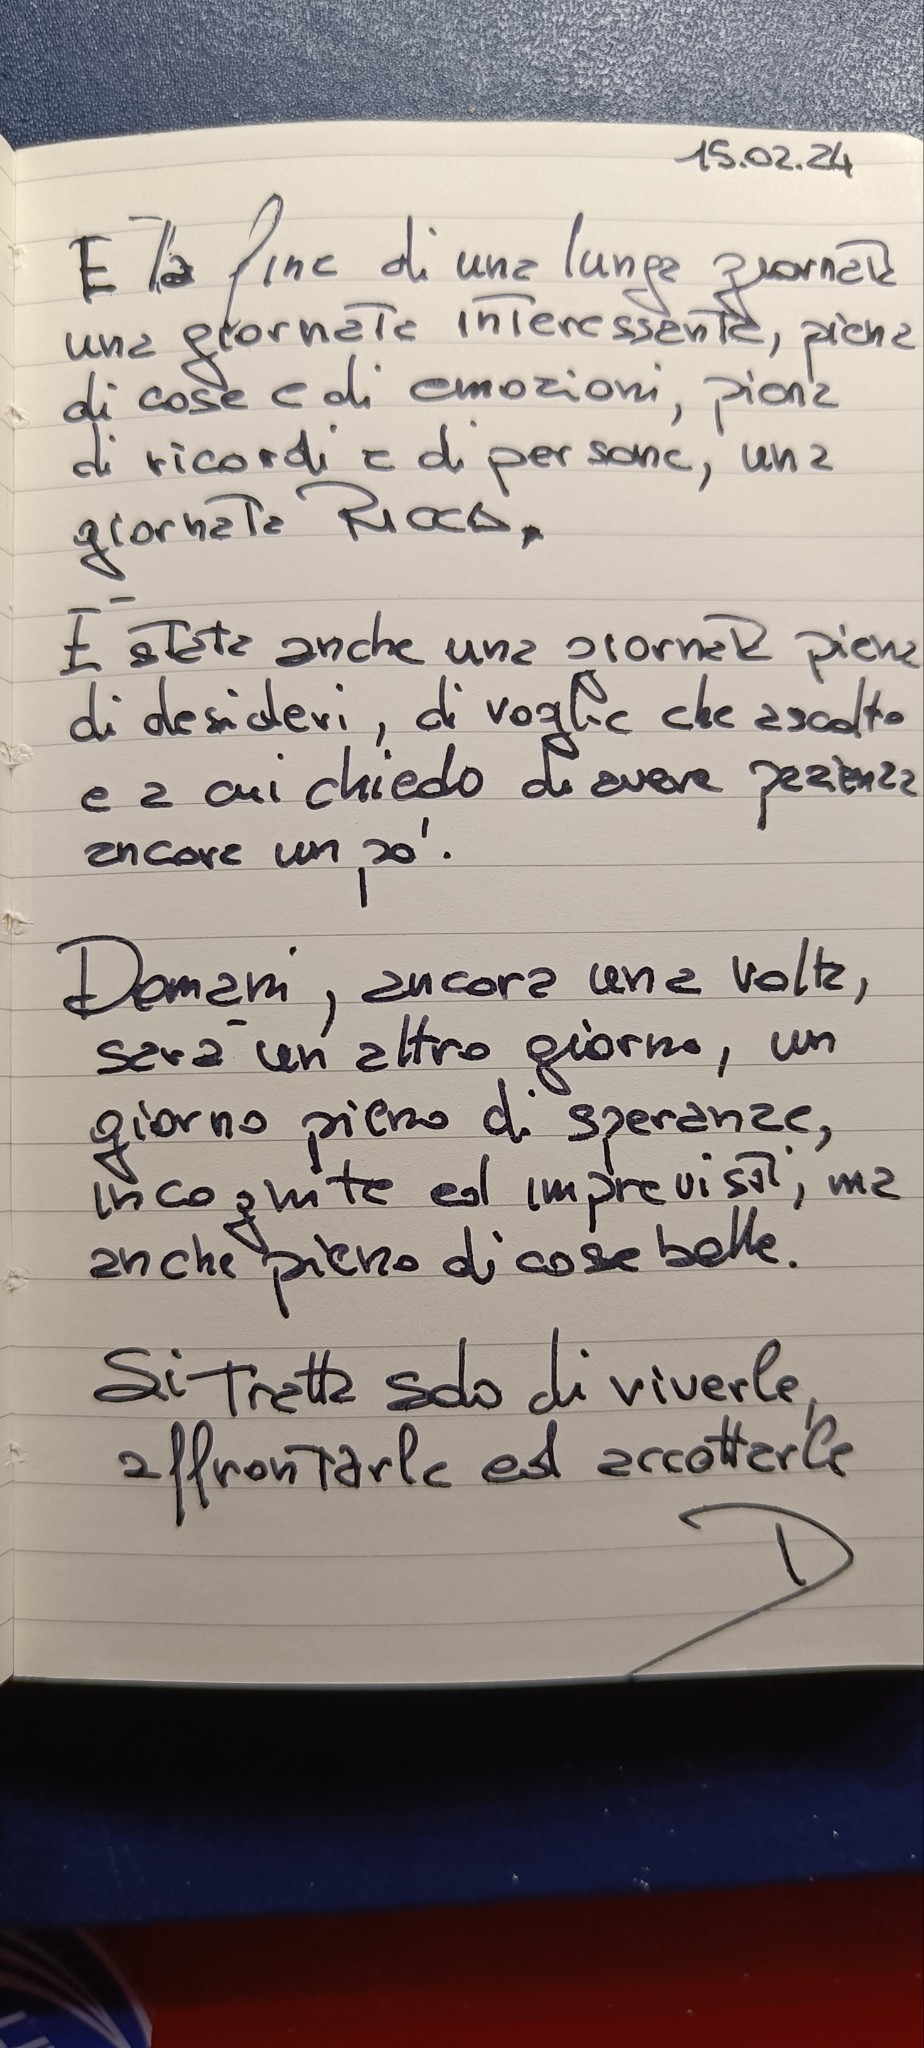 15.02.24
E la fine di una lunga giornata
una giornata interessante, piena
di cose e di emozioni, piena
di ricordi e di persone, una
giornata RICCA.
È stata anche una giornata piena
di desideri, di voglie che ascolto
e a cui chiedo di avere pazienza
ancora un po'.
Domani, ancora una volta,
sarà un altro giorno, un
giorno pieno di speranze,
incognite ed imprevisti, ma
anche pieno di cose belle.
Si tratta solo di viverle,
affrontarle ed accettarle
D